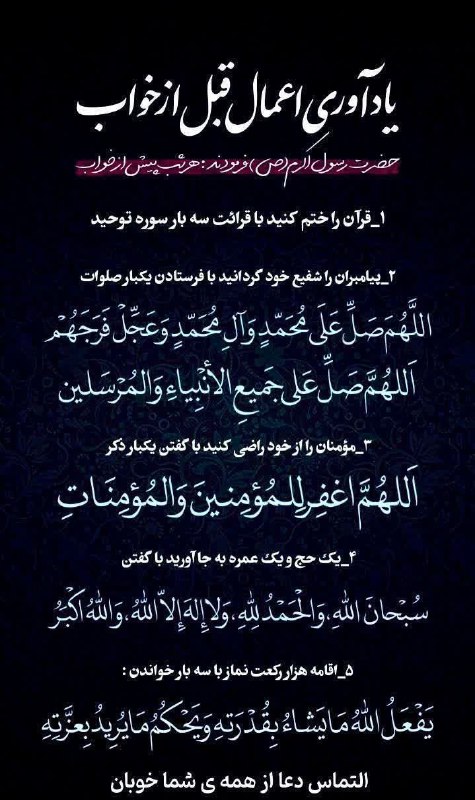 یادآوریِ اعمال قبل از خواب
حضرت رسول اکرم (ص) فرمودند : هر شب پیش از خواب
۱_قرآن را ختم کنید با قرائت سه بار سوره توحید
۲_پیامبران را شفیع خود گردانید با فرستادن یکبار صلوات
اللَّهُمَ صَلِّ عَلَی مُحَمَّدٍ وَآلِ مُحَمَّدٍ وَعَجِّلْ فَرَجَهُمْ
اَللهُمَّ صَلِّ عَلی جَمیعِ الأَنْبِیاءِ وَالمُرْسَلین
۳_مؤمنان را از خود راضی کنید با گفتن یکبار ذکر
اَللهُمَّ اغفِر لِلمُؤمِنینَ وَالمُؤمِنَاتِ
۴_یک حج و یک عمره به جا آورید با گفتن
سُبْحانَ اللهِ، وَالْحَمْدُ لِلّهِ، وَلا إِلهَ إِلاَّ اللهُ، وَاللهُ اکْبَرُ
۵_اقامه هزار رکعت نماز با سه بار خواندن :
یَفْعَلُ اللهُ مَا یَشاءُ بِقُدْرَتِهِ وَیَحْکُمُ مَا یُرِیدُ بِعِزَّتِهِ
التماس دعا از همه ی شما خوبان